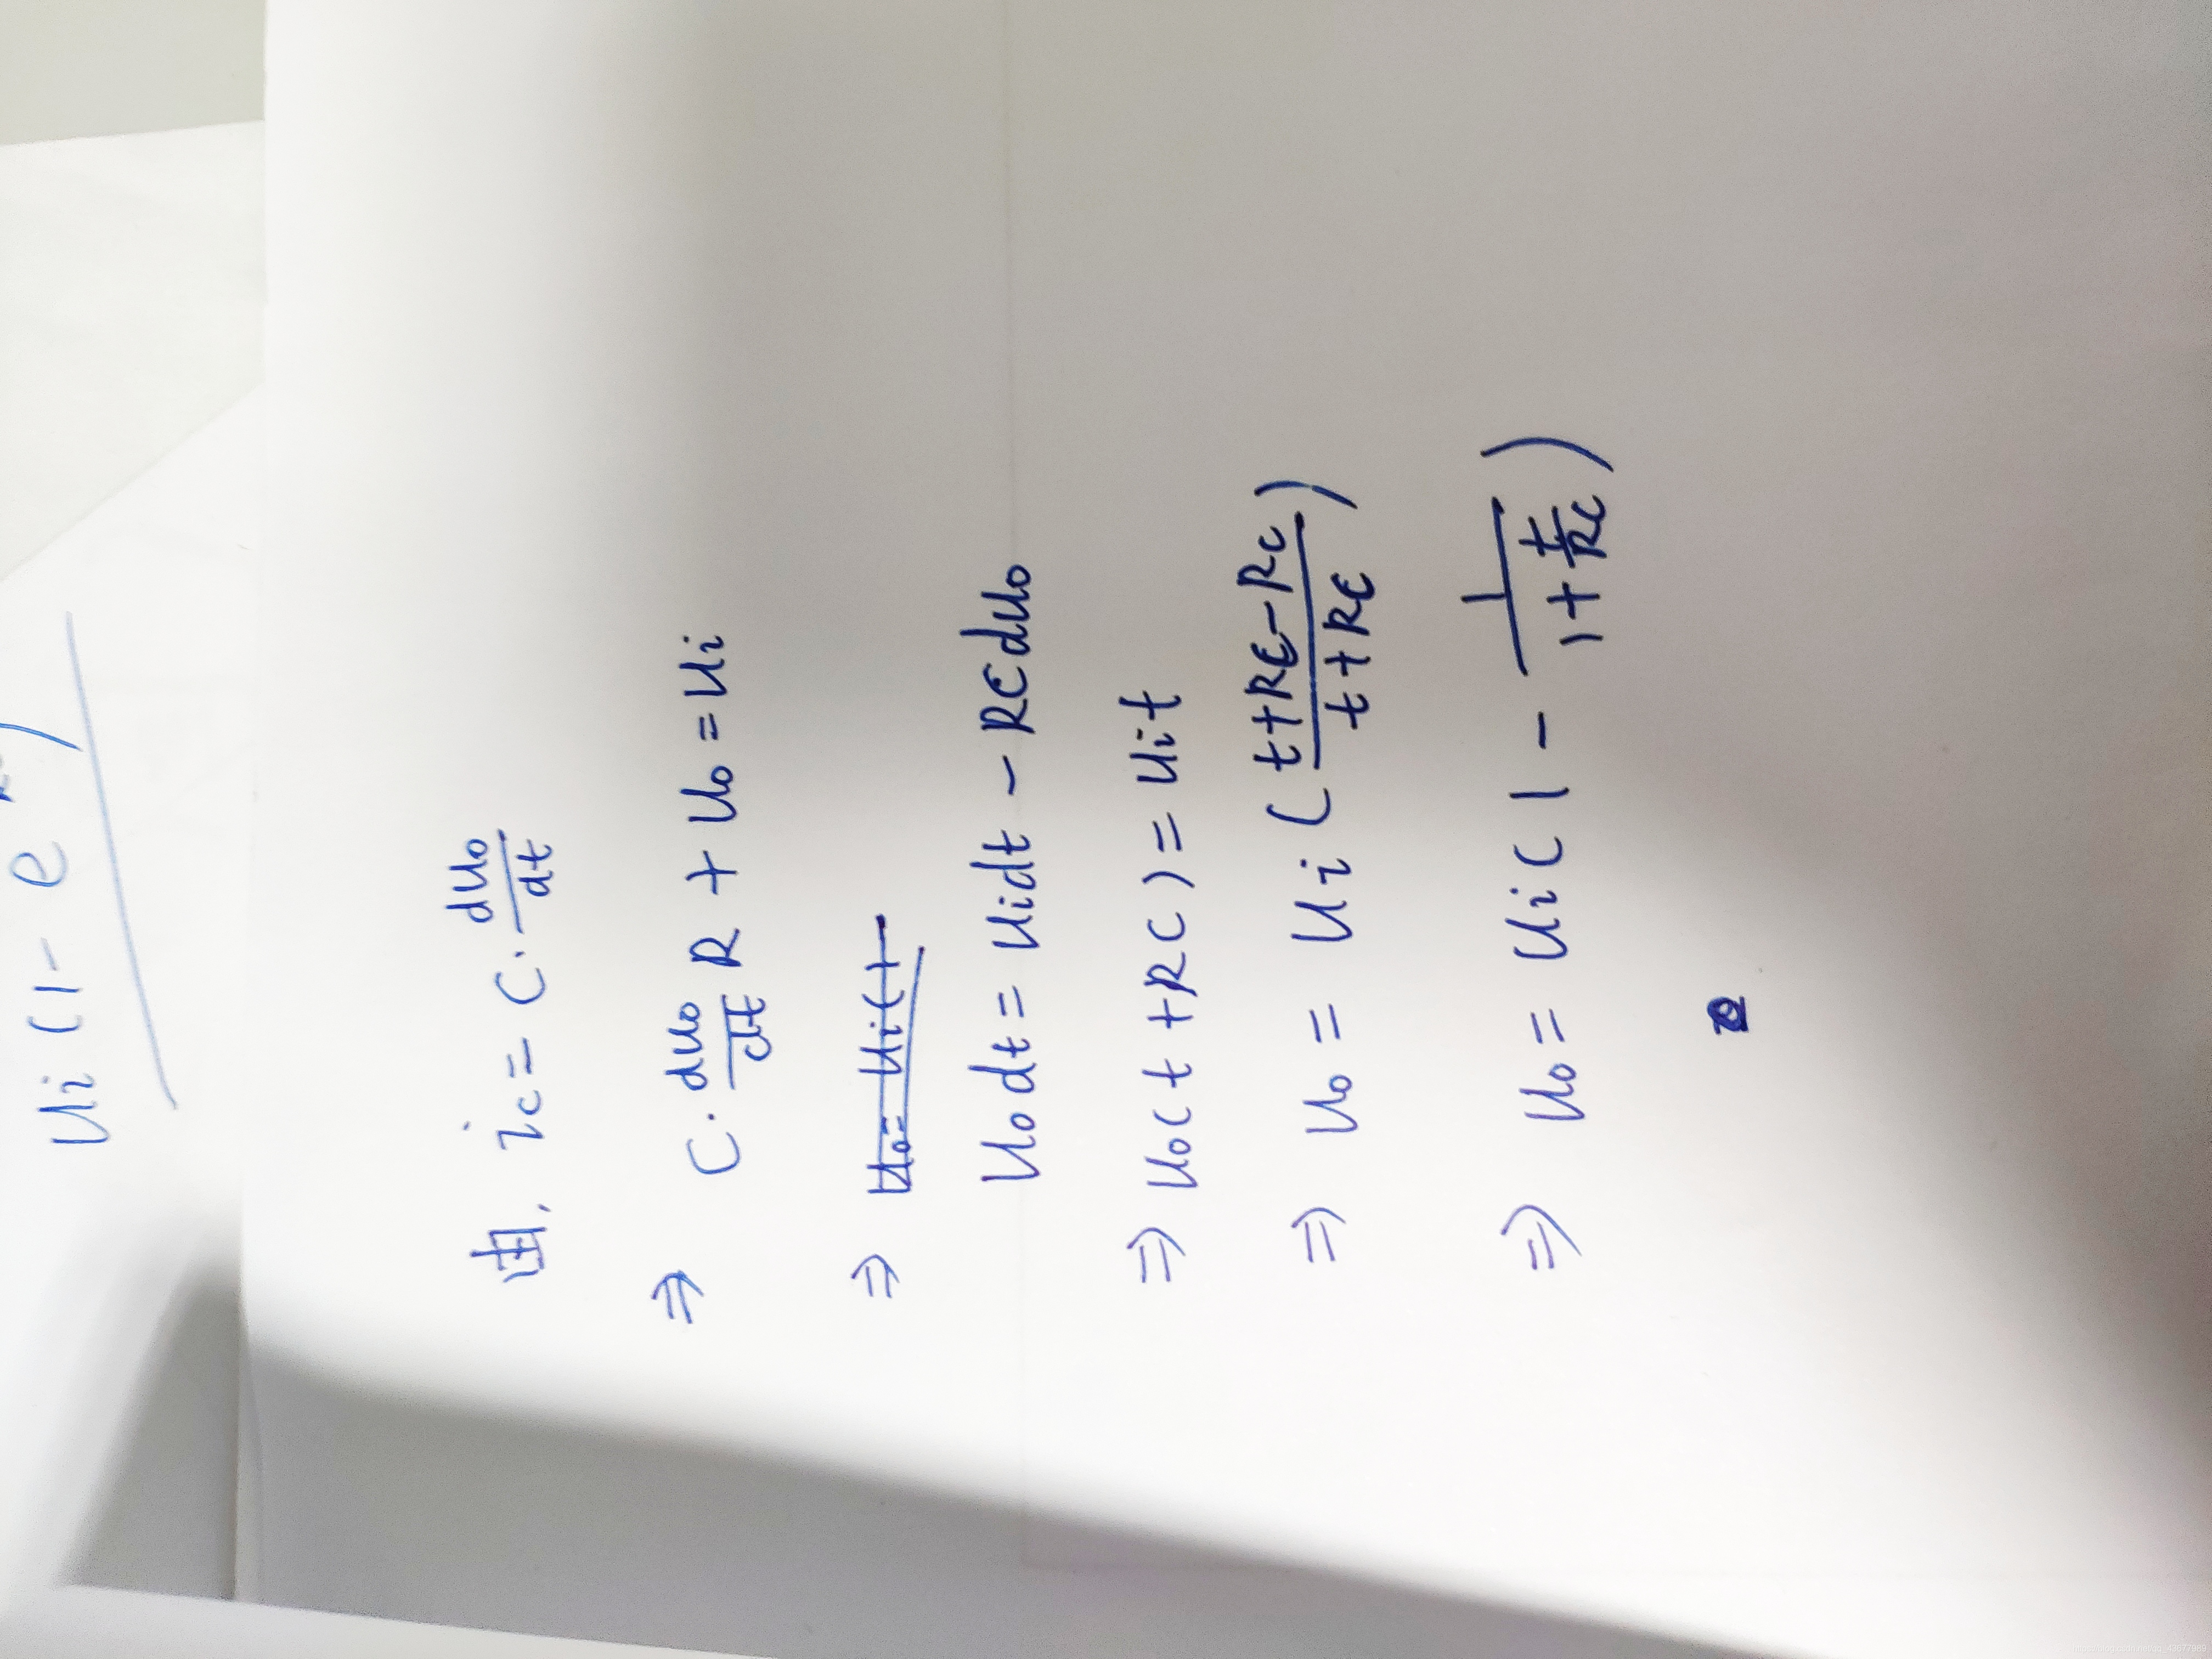 Ui(1-e
由, ic = C·duo/dt
⇒ C·duo/dt R + Uo = Ui
⇒ Uo = Ui(t
Uo dt = Uidt - RCduo
⇒ Uo(t+RC) = Uit
⇒ Uo = Ui(t+RC-RC/t+RC)
⇒ Uo = Ui(1 - 1/1+t/RC)